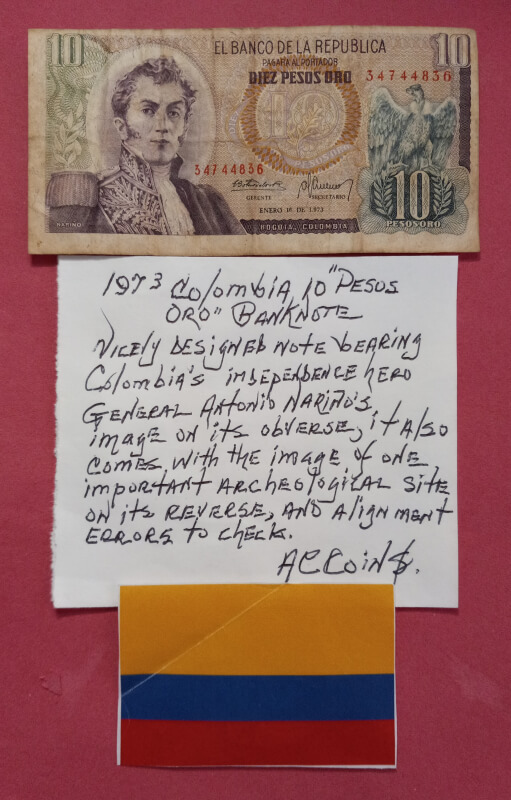 10
EL BANCO DE LA REPUBLICA
10
PAGARA AL PORTADOR
DIEZ PESOS ORO
34744836
34744836
GERENTE
SECRETARIO
ENERO 1º DE 1973
NARIÑO
BOGOTA, COLOMBIA
10
PESOS ORO
1973 Colombia 10 "PESOS
ORO" BANKNOTE
NICELY DESIGNED NOTE bEARING
Colombia's INDEPENDENCE hero
GENERAL ANTONIO NARIÑO'S
image on its obverse, it Also
comes with the image of one
important Archeological site
on its REVERSE, AND Alignment
ERRORS to check.
ACCoin$.